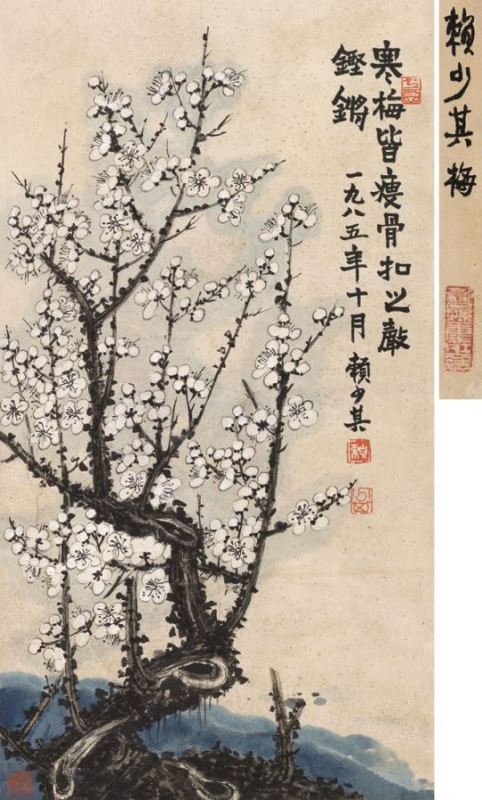 寒梅皆瘦骨扣之聲
鏗鏘
一九八五年十月 賴少其
賴少其梅